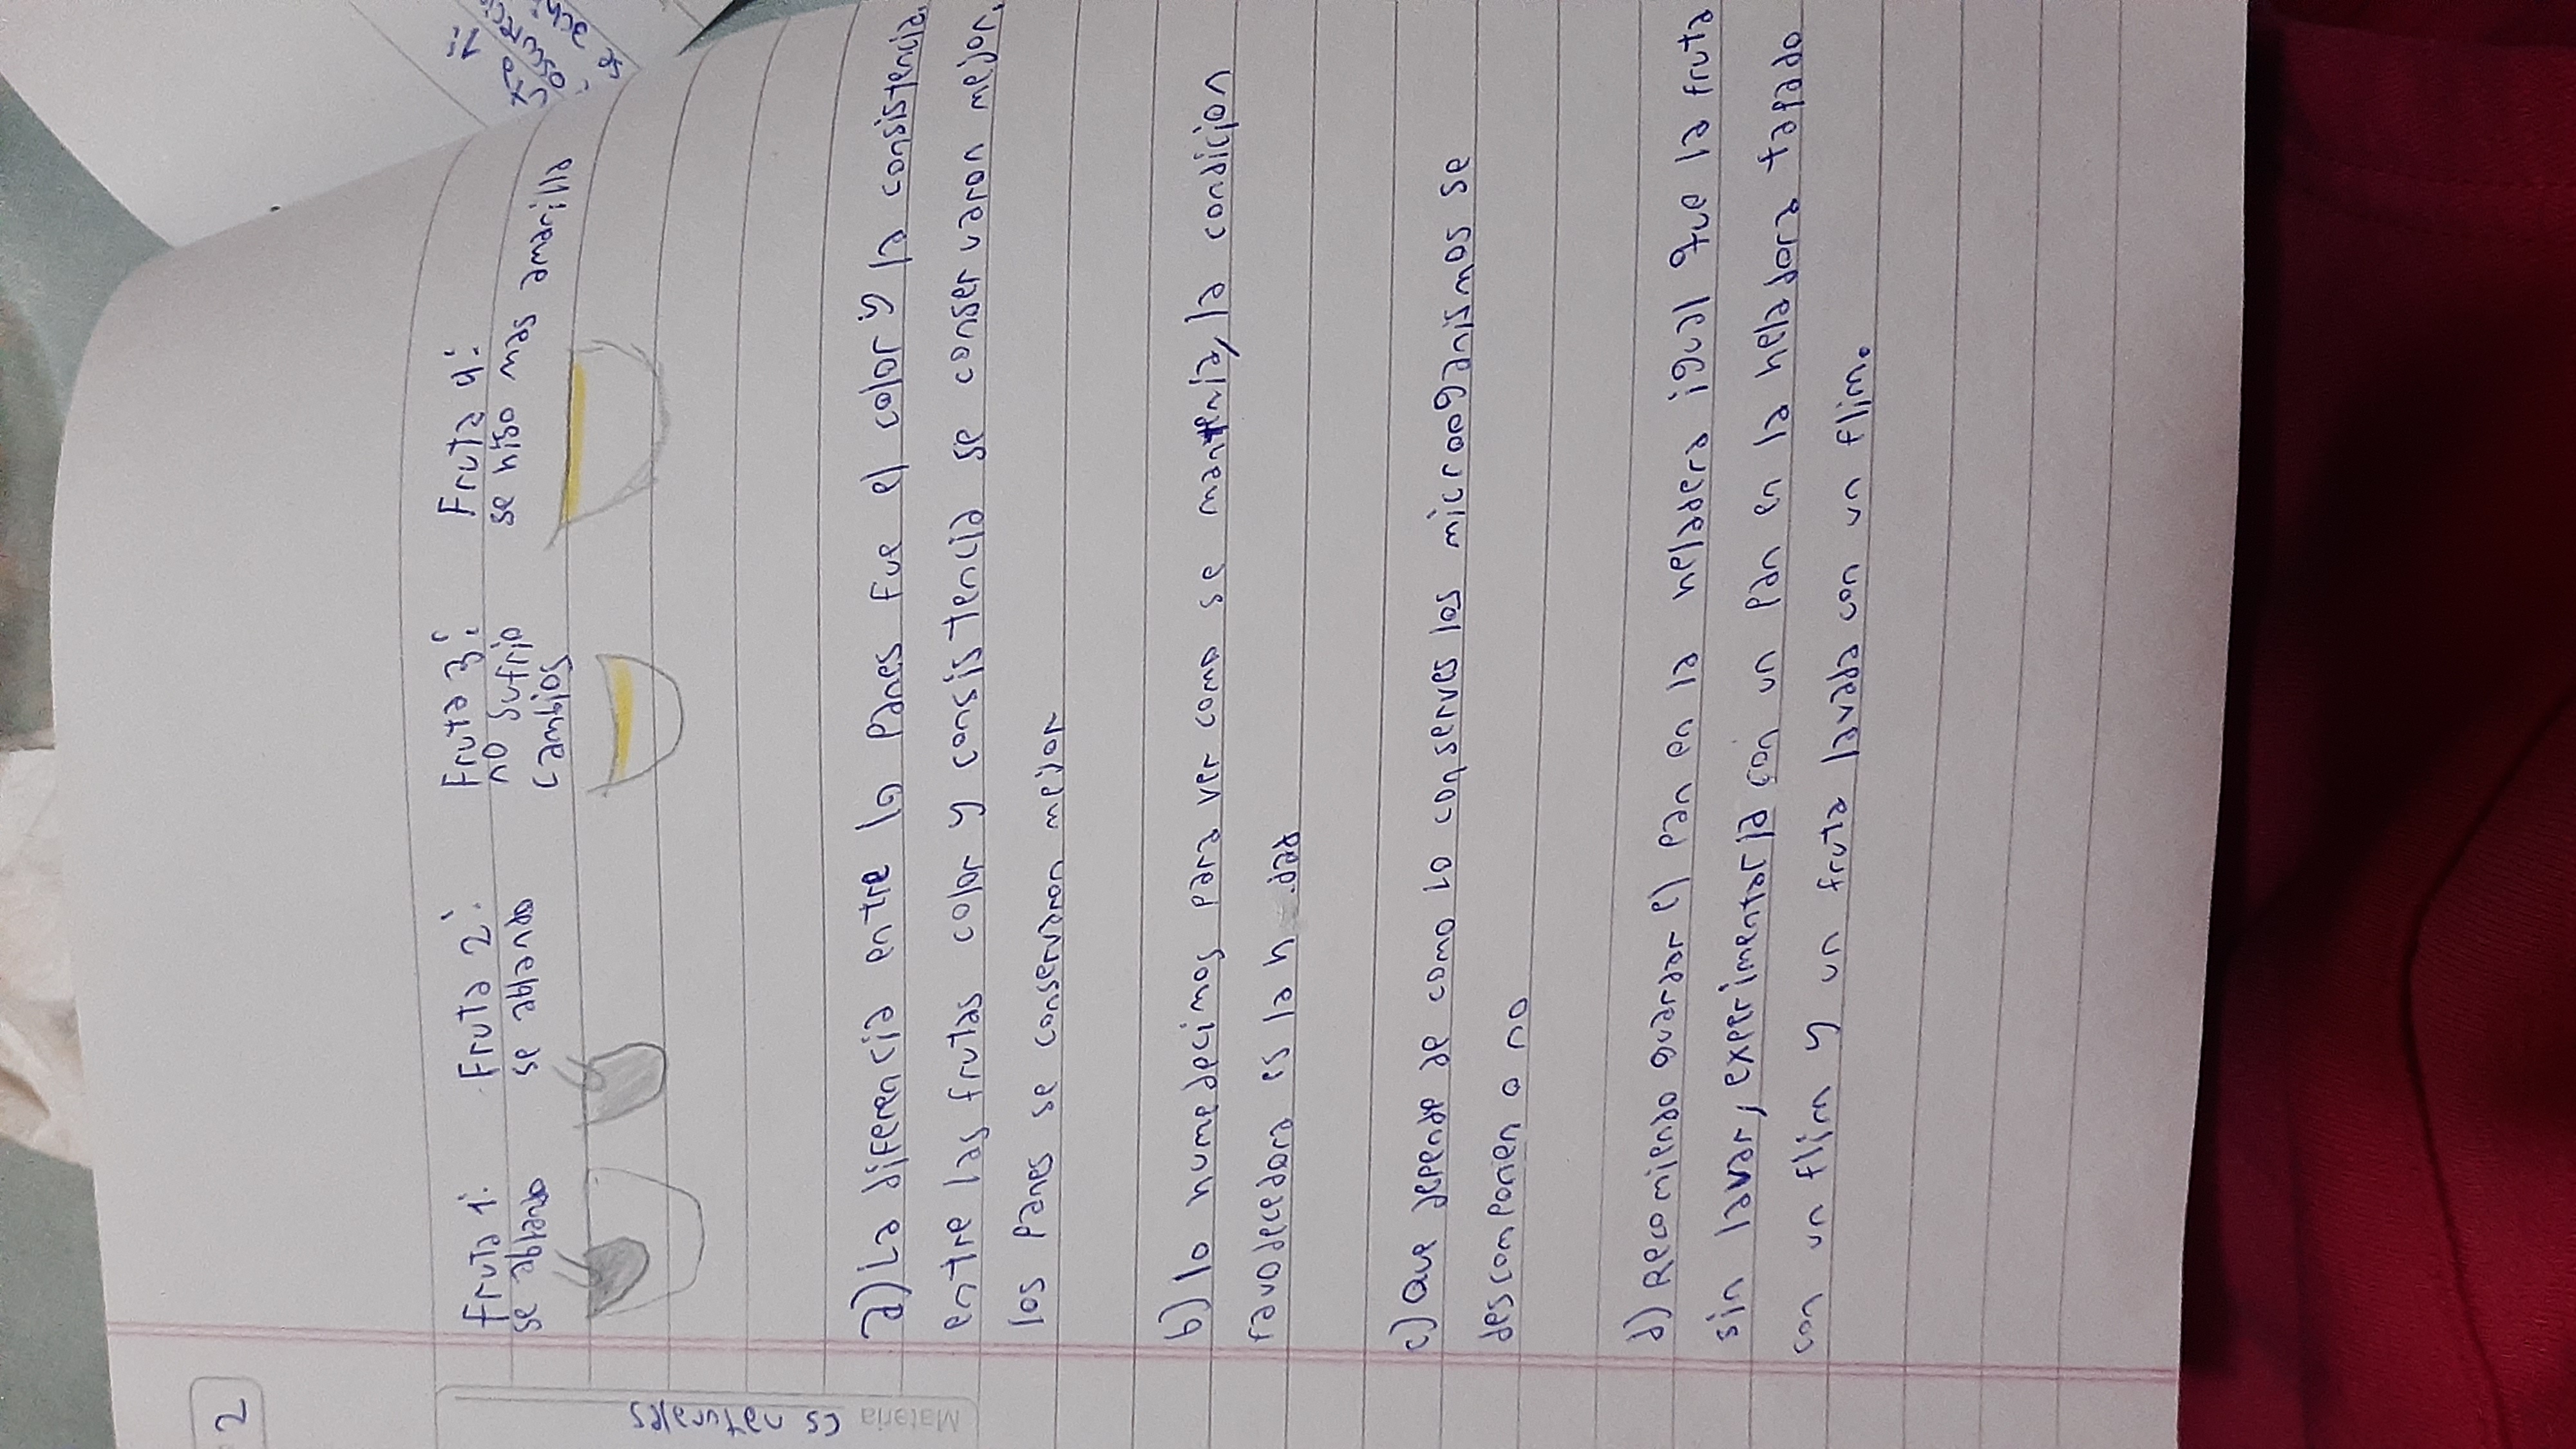 2
Materia cs naturales
Fruta 1: Fruta 2: Fruta 3: Fruta 4:
se ablando se ablando no sufrio cambios se hiso mas amarilla
a) La differencia entre lo panes fue el color y el consistencia,
entre las frutas color y consistencia de conser varon mejor.
los panes se conservaron mejor
b) lo humedecimos para ver como se mantenia/el condicion
favordecera es la h dad
c) Que depende de como lo conserves los microorganismos se
descomponen o no
d) Recomiendo guardar el pan en la heladera igual que la fruta
sin lavar, experimentaria con un pan en la heladera tapado
con un flim y un fruta lavada con un flim.